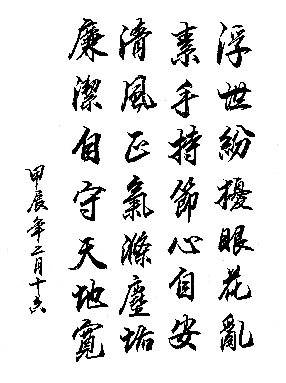 浮世紛擾眼花亂
素手持節心自安
清風正氣滌塵垢
廉潔自守天地寬
甲辰年二月十六